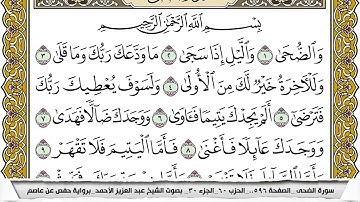 بِسْمِ اللَّهِ الرَّحْمَٰنِ الرَّحِيمِ
وَالضُّحَىٰ ١ وَاللَّيْلِ إِذَا سَجَىٰ ٢ مَا وَدَّعَكَ رَبُّكَ وَمَا قَلَىٰ ٣
وَلَلْآخِرَةُ خَيْرٌ لَكَ مِنَ الْأُولَىٰ ٤ وَلَسَوْفَ يُعْطِيكَ رَبُّكَ
فَتَرْضَىٰ ٥ أَلَمْ يَجِدْكَ يَتِيمًا فَآوَىٰ ٦ وَوَجَدَكَ ضَالًّا فَهَدَىٰ ٧
وَوَجَدَكَ عَائِلًا فَأَغْنَىٰ ٨ فَأَمَّا الْيَتِيمَ فَلَا تَقْهَرْ ٩
سورة الضحى_ الصفحة ٥٩٦_ الحزب ٦٠_ الجزء ٣٠_ بصوت الشيخ عبد العزيز الأحمد_ برواية حفص عن عاصم